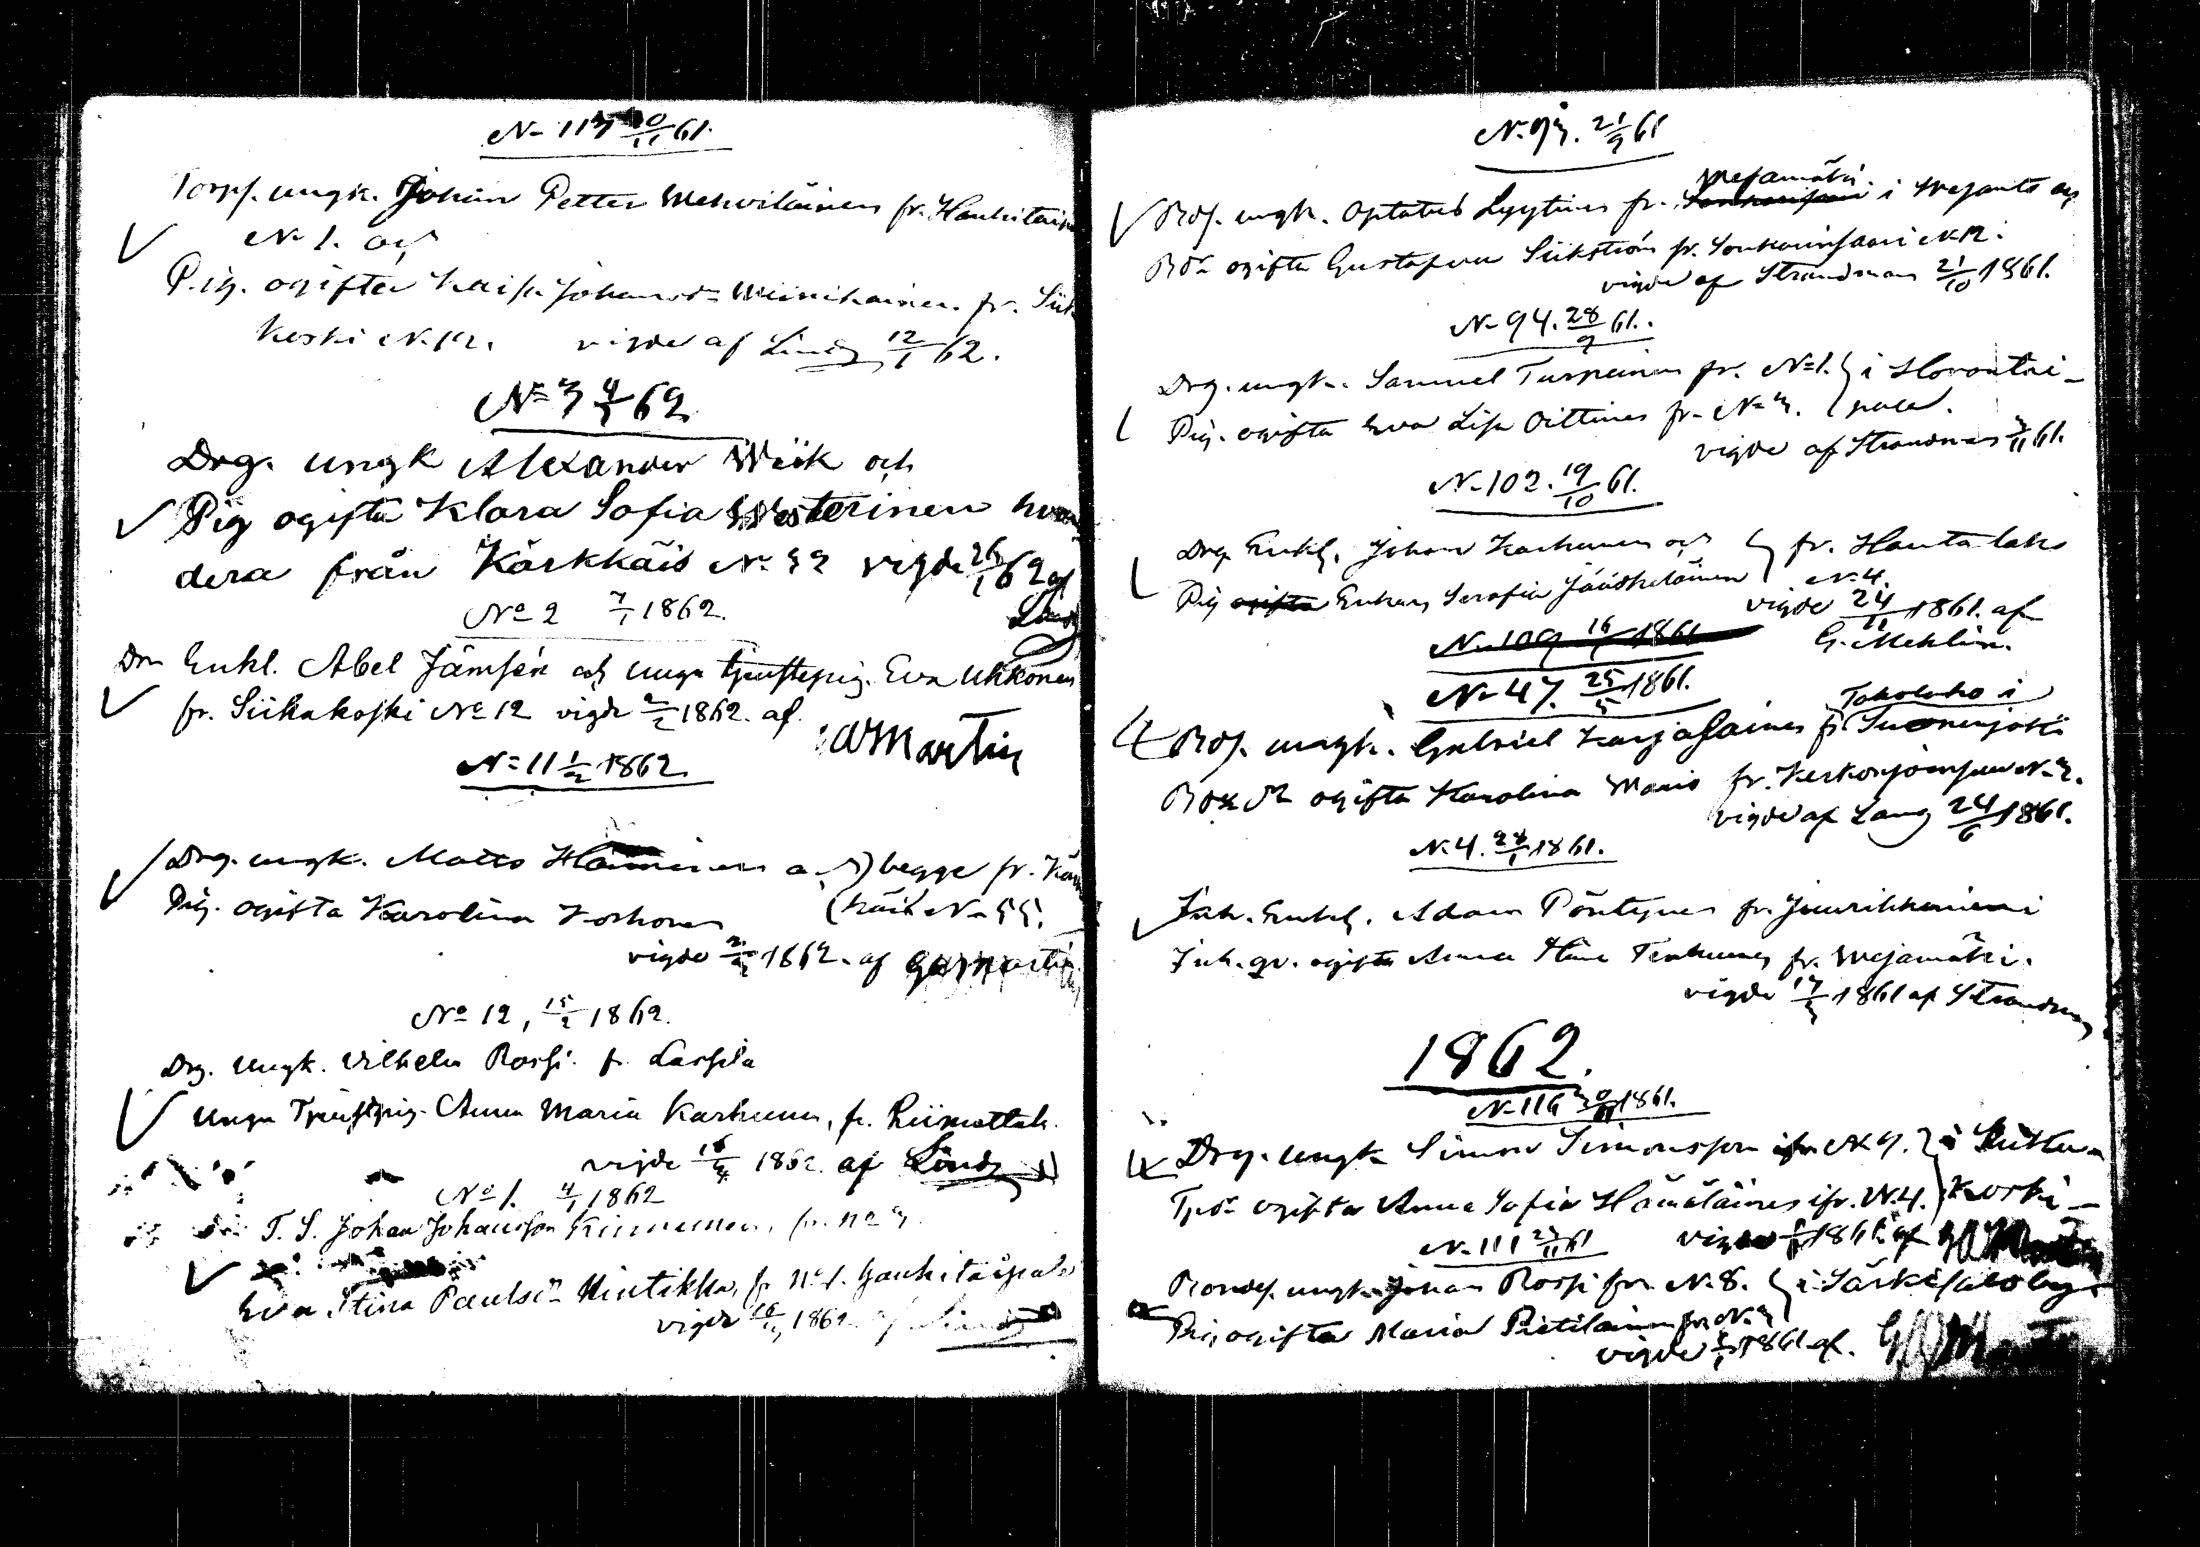 N- 113 30/11 61.
Torpf. ungk. Johan Petter Mehviläinen fr. Hankitaip
N- 1. och
Pig. ogifta Kaisa Johansdr Miinikainen fr. Siik
koski N. 12. vigde af Lind 12/1 62.
N= 3 4/1 62
Drg. ungk Alexander Wiik och
Pig ogifta Klara Sofia Westerinen hvar
dera från Kärkkäis N- 32 vigde 26/1 62 af
Lind
No 2 7/1 1862.
Dr Enkl. Abel Jämsén och unga tjenstepig. Eva Ukkonen
fr. Siikakoski No 12 vigde 2/2 1862. af.
GWMartin
N= 11 1/2 1862.
Drg. ungk. Matts Hänninen och begge fr. Kär
Pig. ogifta Karolina Korhonen kkäis N- 55.
vigde 2/3 1862. af GWMartin
No 12, 15/2 1862.
Drg. Ungk. Vilhelm Rossi fr. Lassila
Unga Tjenstpig. Anna Maria Karhunen, fr. Riimattal.
vigde 16/3 1862. af Lind
No 1. 4/1 1862
T. S. Johan Johansson Kinnunen, fr. No 3.
Eva Stina Paulsdr Hintikka, fr No 1. Hankitaipale
vigde 1862 af Lind
N- 93. 21/9 61
Mejamäki
Bdf. ungk. Optatus Lyytinen fr. i Wesanto och
Bdr ogifta Gustafva Siikström fr. Sonkarinsaari N. 12.
vigde af Strandman 21/10 1861.
N- 94. 28/9 61.
Drg. ungk. Samuel Turpeinen fr. N= 1. i Horontai-
Pig. ogifta Eva Lisa Oittinen fr. N- 3. pale.
vigde af Strandman 3/11 61.
N- 102. 19/10 61.
Drg Enkl. Johan Karhunen och fr. Hautalaks
Pig ogifta Enkan Serafia Jääskeläinen N- 4.
vigde 24/11 1861. af
G. Mehlin.
N- 109 16/11 1861
N- 47. 25/5 1861.
Toholaho i
Bdf. ungk. Gabriel Karjalainen fr. Suonenjoki
Bdr ogifta Karolina Maris fr. Kerkonjoensuu N- 3.
vigde af Lang 24/6 1861.
N- 4. 27/1 1861.
Inh. Enkl. Adam Pöntynen fr. Juurikkaniemi
Inh. qv. ogifta Anna Stina Tenhunen fr. Mejamäki.
vigde 17/3 1861 af Strandman
1862.
N- 116 30/11 1861.
Drg. ungk Simon Simonsson ifr N 7. i Kutun
Tpdr ogifta Anna Sofia Hämäläinen ifr. N. 4. koski-
vigde 1861 af
N- 111 23/11 61
Bondes. ungk. Johan Rossi fr N- 8. i Särkisalo by
Pig ogifta Maria Pietiläinen fr. N- 3
vigde 1861 af. GWMartin